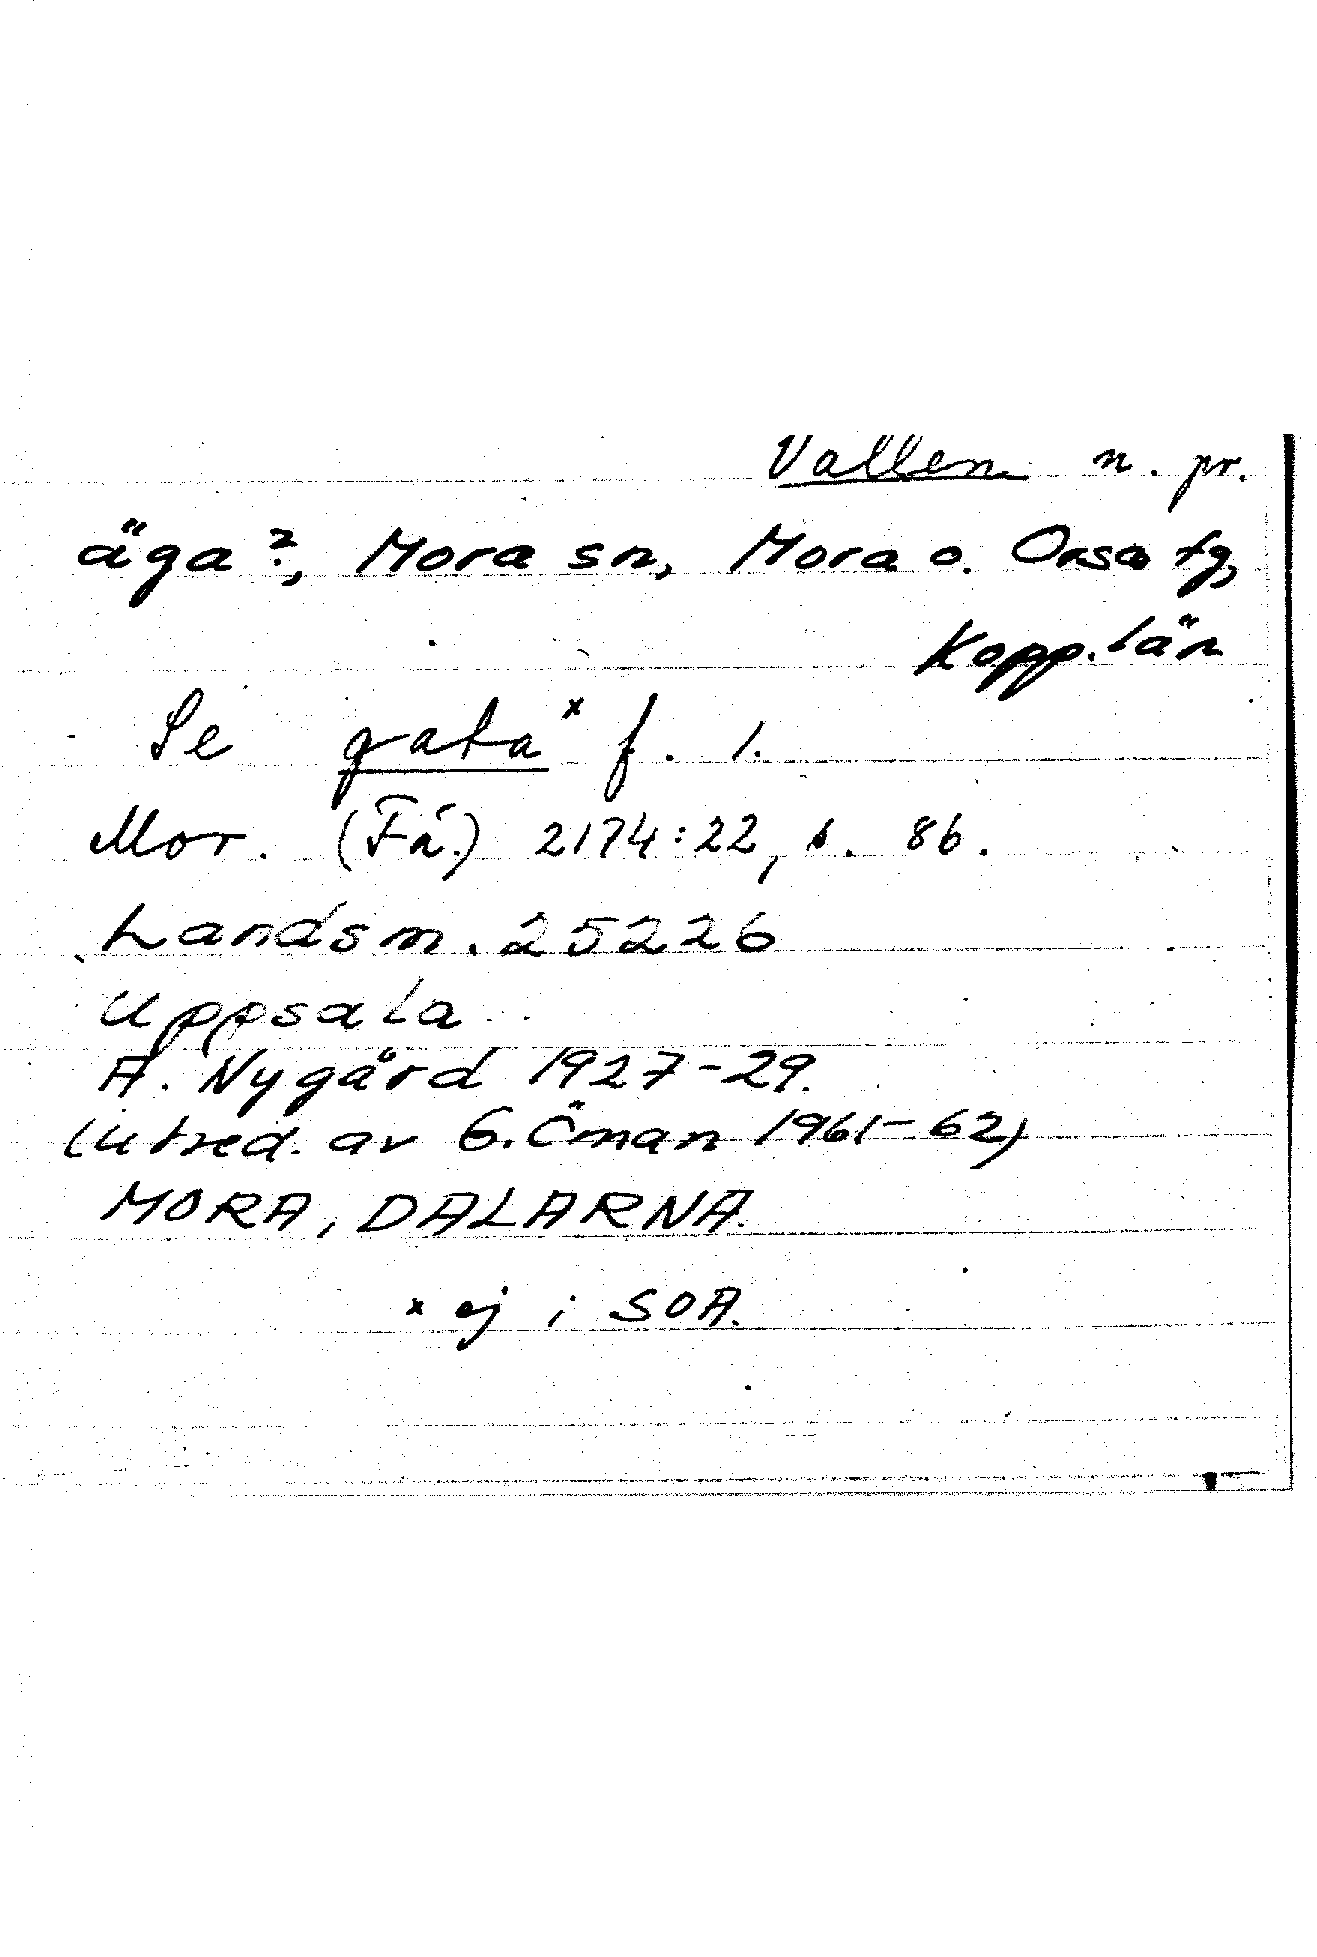 Vallen n. pr.
äga?, Mora sn, Mora o. Orsa tg,
Kopp. län
Se gata x f. 1.
Mor. (Få.) 2174:22, s. 86.
Landsm. 25226
Uppsala
A. Nygård 1927-29.
(utred. av G. Öman 1961-62)
MORA, DALARNA.
x ej i SOA.